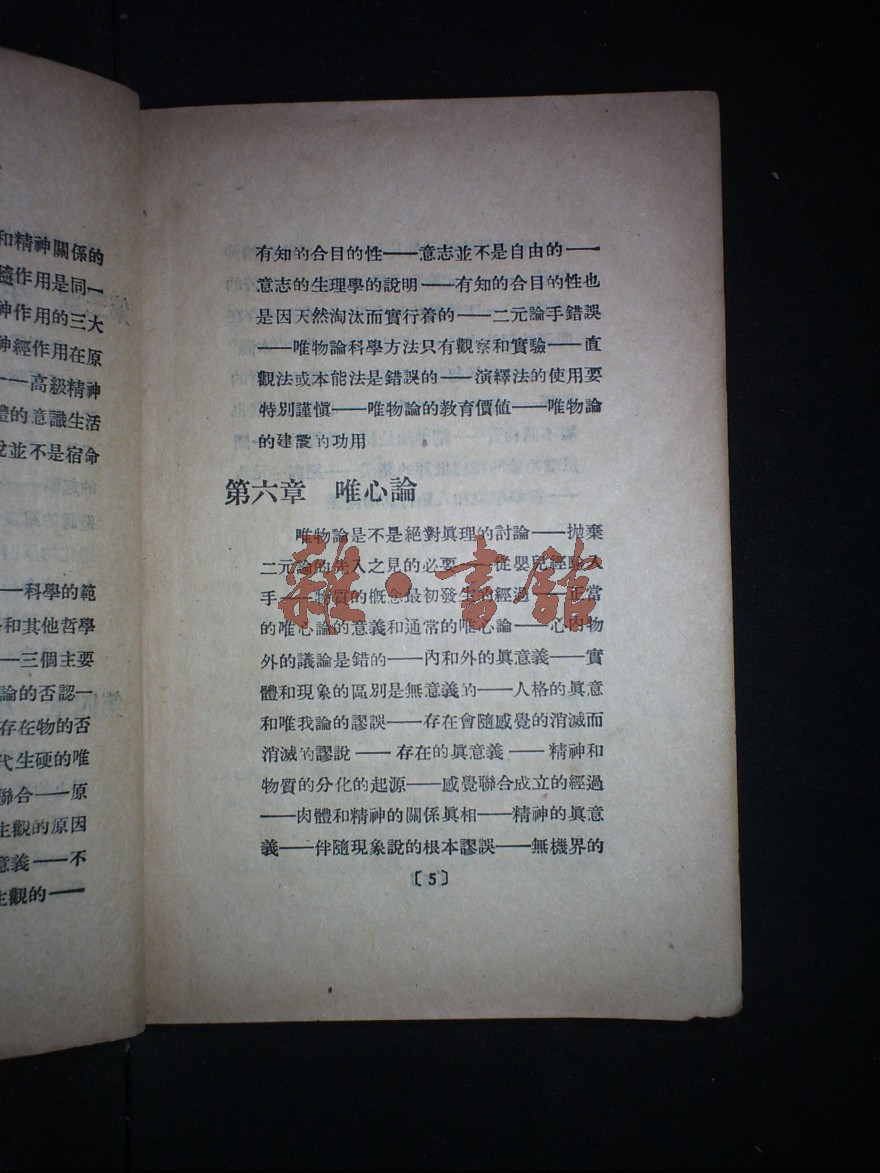 和精神關係的
隨作用是同一
神作用的三大
神經作用在原
——高級精神
體的意識生活
說並不是宿命
——科學的範
和其他哲學
——三個主要
論的否認—
存在物的否
代生硬的唯
聯合——原
主觀的原因
意義——不
主觀的——
有知的合目的性——意志並不是自由的——
意志的生理學的說明——有知的合目的性也
是因天然淘汰而實行着的——二元論手錯誤
——唯物論科學方法只有觀察和實驗——直
觀法或本能法是錯誤的——演繹法的使用要
特別謹愼——唯物論的教育價値——唯物論
的建設的功用
第六章 唯心論
唯物論是不是絕對眞理的討論——拋棄
二元論的先入之見的必要——從嬰兒經驗入
手——物質的概念最初發生的經過——正當
的唯心論的意義和通常的唯心論——心內物
外的議論是錯的——內和外的眞意義——實
體和現象的區別是無意義的——人格的眞意
和唯我論的謬誤——存在會隨感覺的消滅而
消滅的謬說——存在的眞意義——精神和
物質的分化的起源——感覺聯合成立的經過
——肉體和精神的關係眞相——精神的眞意
義——伴隨現象說的根本謬誤——無機界的
〔5〕
雜·書館